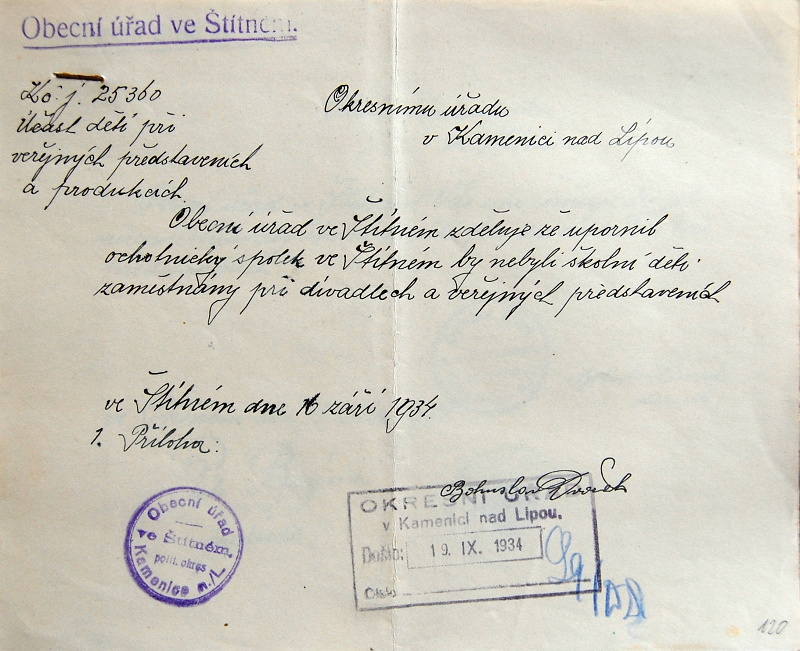 Obecní úřad ve Štítném.
Ko: j. 25360
Účast dětí při
veřejných představeních
a produkcích
Okresnímu úřadu
v Kamenici nad Lípou
Obecní úřad ve Štítném zděluje že upornil
ochotnický spolek ve Štítném by nebyli školní děti
zaměstnány při divadlech a veřejných představeních
ve Štítném dne 16 září 1934.
1. Příloha:
Bohuslav Dvořák
Obecní úřad
ve Štítném.
polit. okres
Kamenice n./L.
OKRESNÍ ÚŘAD
v Kamenici nad Lipou,
Došlo: 19. IX. 1934
120